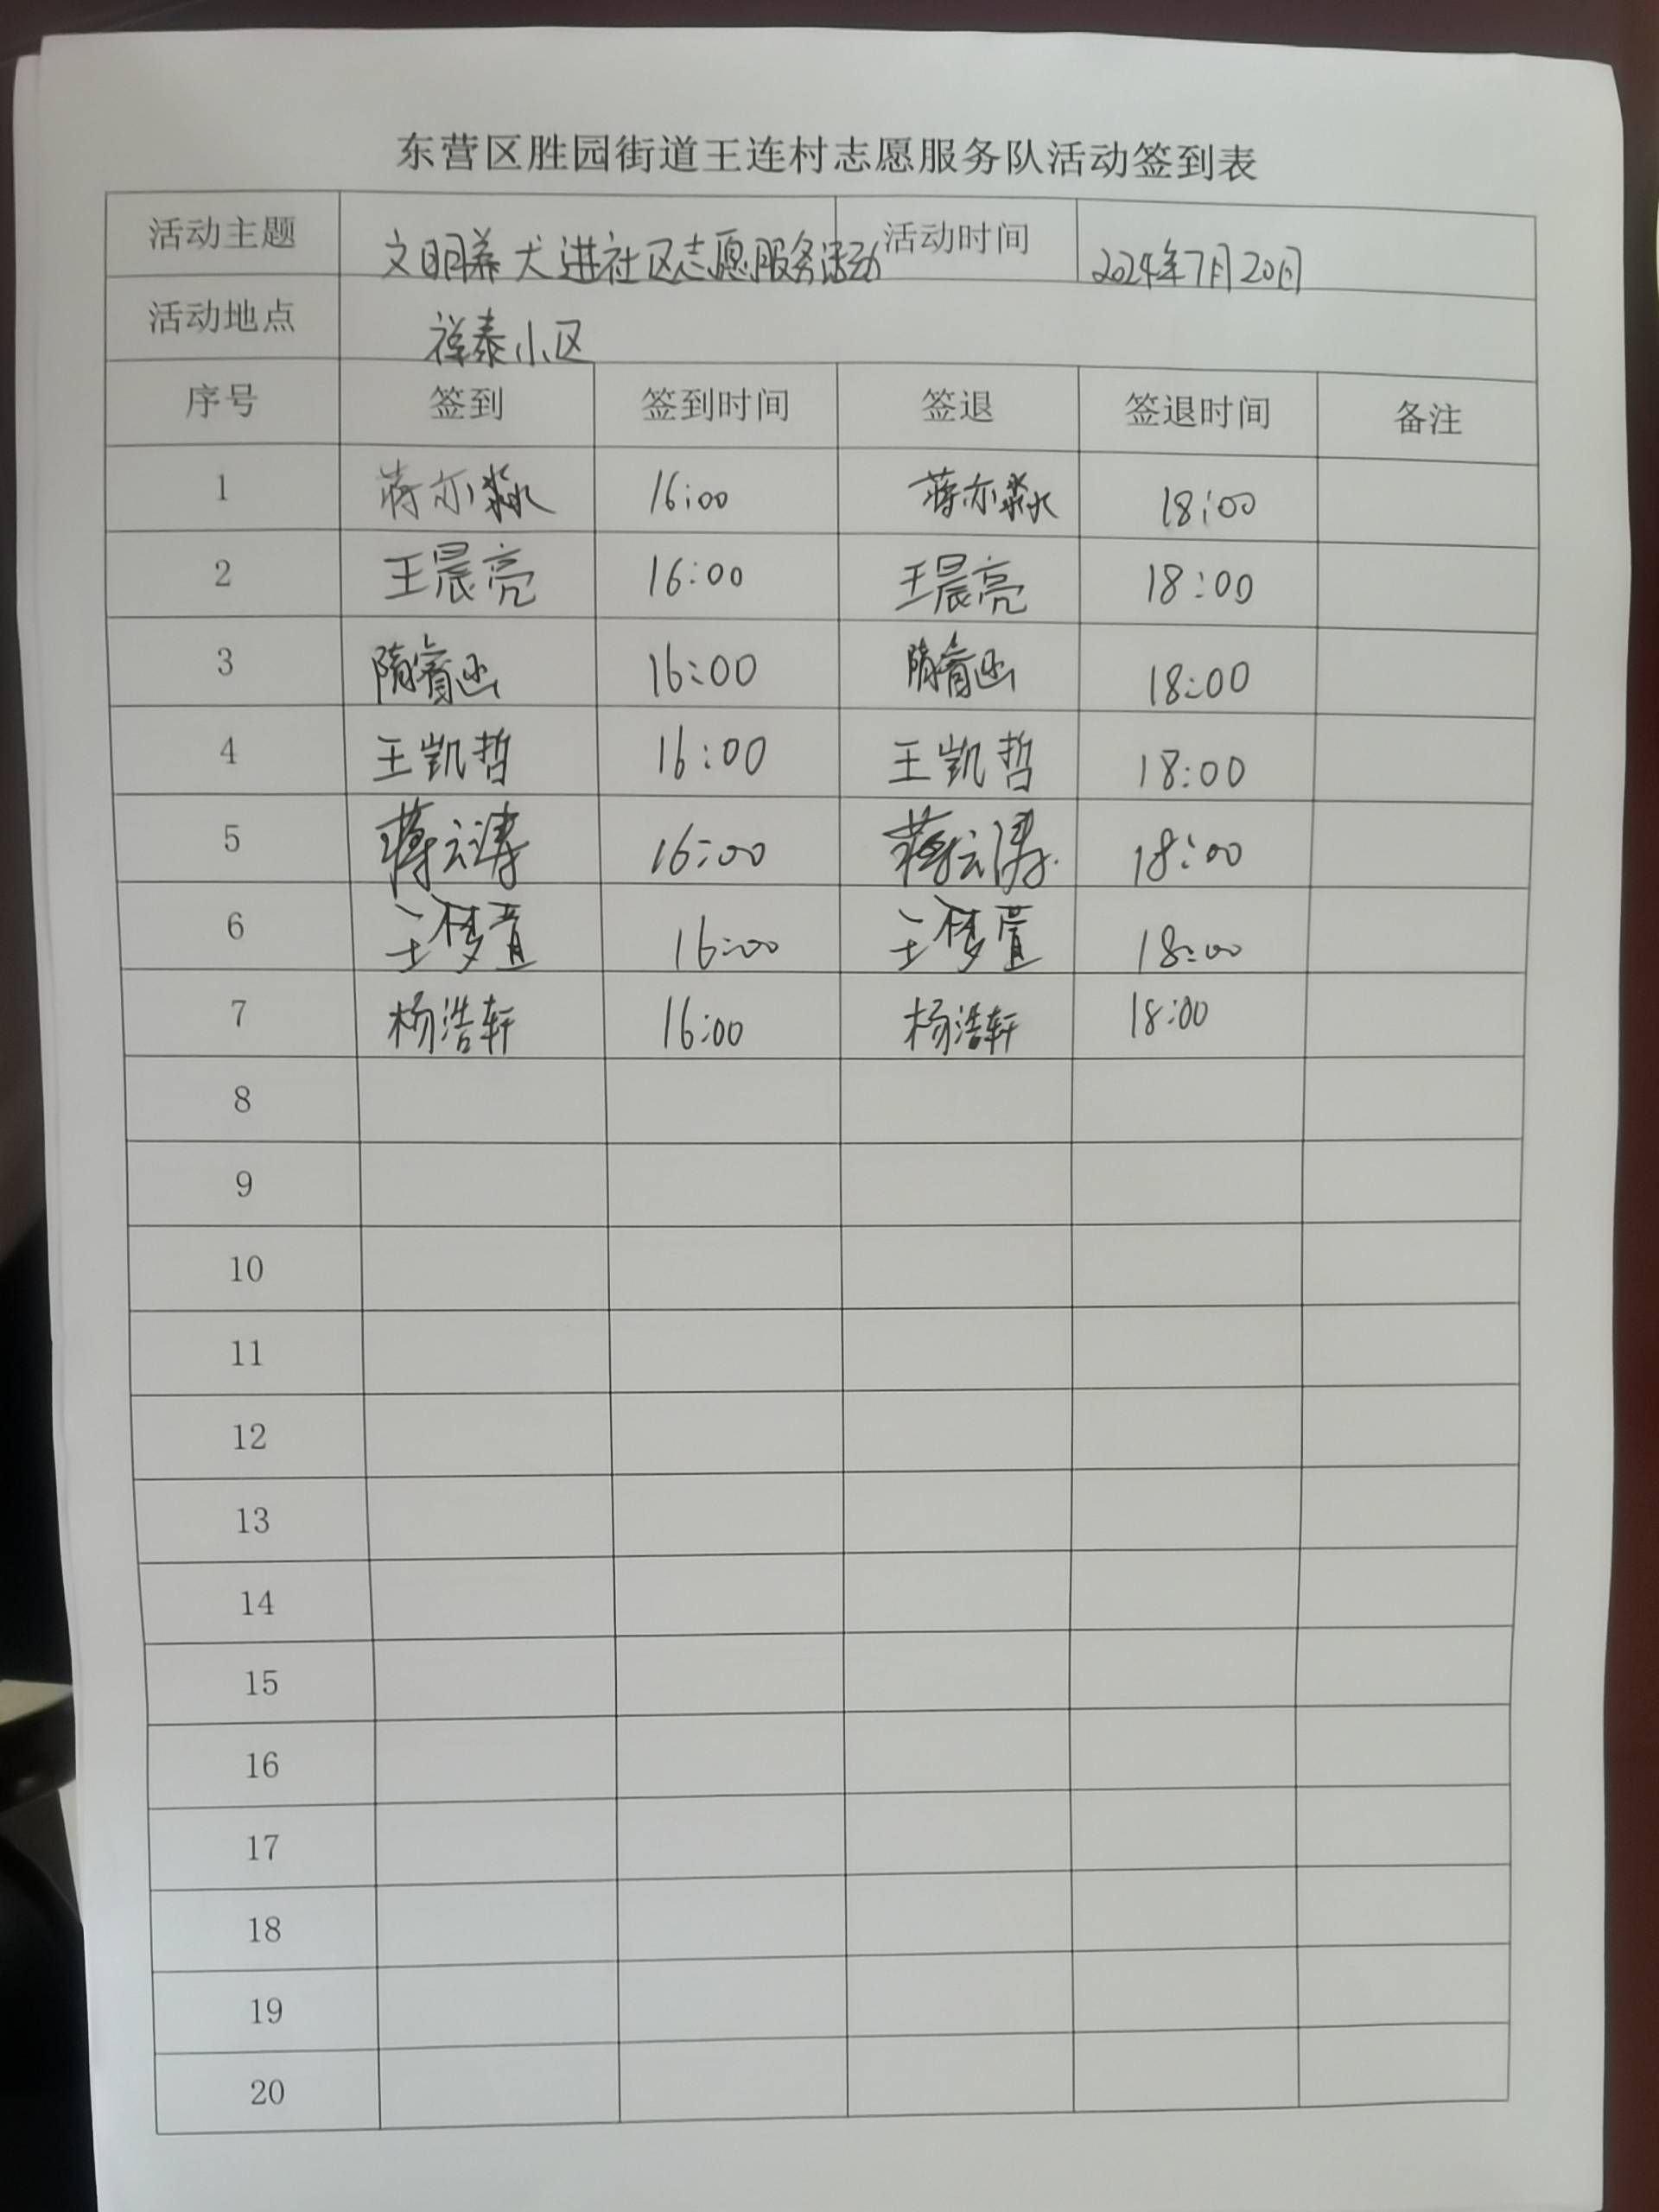 东营区胜园街道王连村志愿服务队活动签到表
活动主题 文明养犬进社区志愿服务活动 活动时间 2024年7月20日
活动地点 祥泰小区
序号 签到 签到时间 签退 签退时间 备注
1 蒋亦淼 16:00 蒋亦淼 18:00
2 王晨亮 16:00 王晨亮 18:00
3 隋 16:00 隋 18:00
4 王凯哲 16:00 王凯哲 18:00
5 蒋云涛 16:00 蒋云涛 18:00
6 王梦萱 16:00 王梦萱 18:00
7 杨浩轩 16:00 杨浩轩 18:00
8
9
10
11
12
13
14
15
16
17
18
19
20